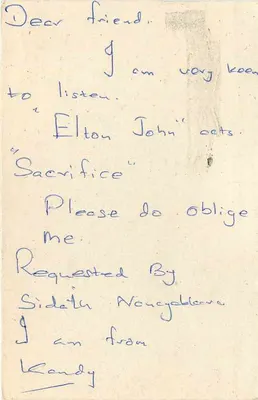 Dear friend.
I am very keen
to listen.
"Elton John" acts.
"Sacrifice"
Please do oblige
me.
Requested By
Sidath
I am from
Kandy